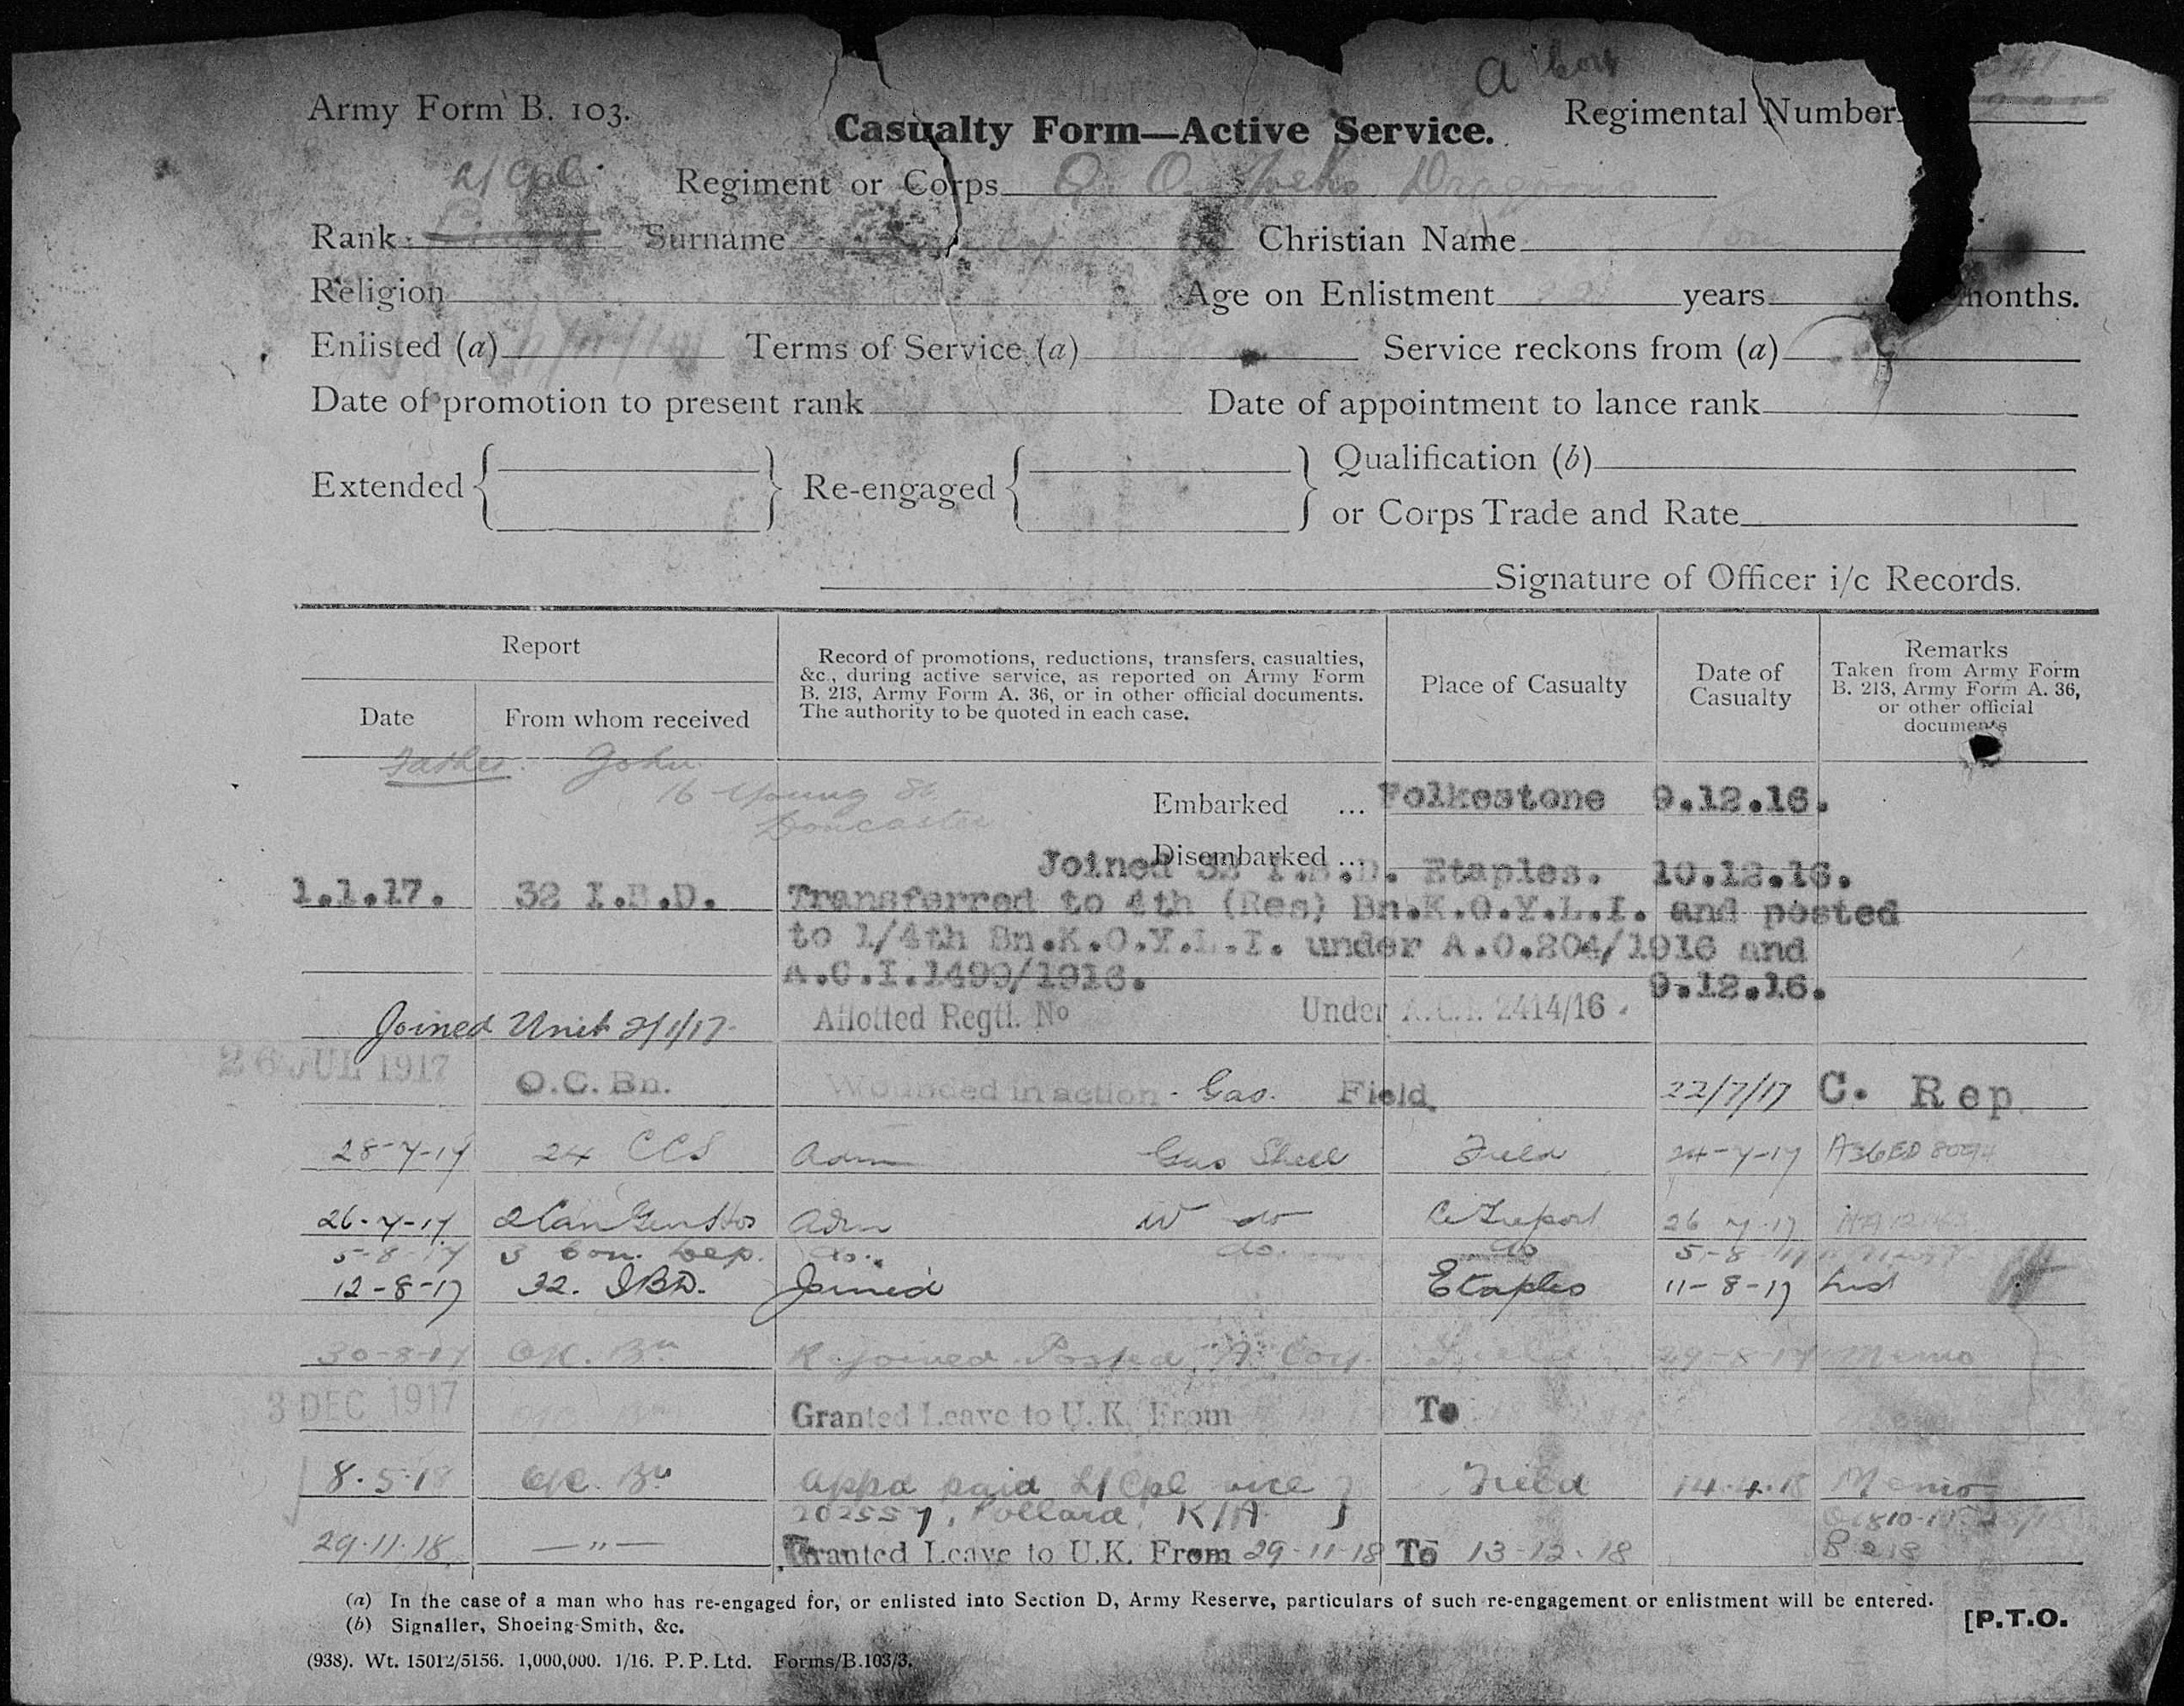 A Coy
Army Form B. 103.
Casualty Form—Active Service.
Regimental Number
L/Cpl.
Regiment or Corps Q. O. Yorks Dragoons
Rank Surname Christian Name
Religion Age on Enlistment years months.
Enlisted (a) Terms of Service (a) Service reckons from (a)
Date of promotion to present rank Date of appointment to lance rank
Extended Re-engaged Qualification (b)
or Corps Trade and Rate
Signature of Officer i/c Records.
Report
Date
From whom received
Record of promotions, reductions, transfers, casualties,
&c., during active service, as reported on Army Form
B. 213, Army Form A. 36, or in other official documents.
The authority to be quoted in each case.
Place of Casualty
Date of
Casualty
Remarks
Taken from Army Form
B. 213, Army Form A. 36,
or other official
documents
Father. John
16 Young St.
Doncaster
Embarked ... Folkestone 9.12.16.
Disembarked ...
Joined 32 I.B.D. Etaples. 10.12.16.
1.1.17. 32 I.B.D. Transferred to 4th (Res) Bn.K.O.Y.L.I. and posted
to 1/4th Bn.K.O.Y.L.I. under A.O.204/1916 and
A.C.I.1499/1916. 9.12.16.
Joined Unit 2/1/17. Allotted Regtl. No Under A.C.I. 2414/16.
26 JUL 1917 O.C. Bn. Wounded in action - Gas. Field. 22/7/17 C. Rep
28-7-17 24 CCS Adm Gas Shell Field 24-7-17 A36ED
26-7-17 2 Can Gen Hos Adm W do Le Treport 26 7-17
5-8-17 3 Con. Dep. do. do. do 5-8-17
12-8-17 32. IBD. Joined Etaples 11-8-17
30-8-17 OC. Bn Rejoined Posted A Coy. Field 29-8-17 Memo
3 DEC 1917 Granted Leave to U. K. From To
8.5.18 OC. Bn Appd paid L/Cpl vice Field 14.4.18 Memo
202557, Pollard, K/A
29.11.18. —"— Granted Leave to U.K. From 29-11-18 To 13-12-18 B 213
(a) In the case of a man who has re-engaged for, or enlisted into Section D, Army Reserve, particulars of such re-engagement or enlistment will be entered.
(b) Signaller, Shoeing-Smith, &c.
[P.T.O.
(938). Wt. 15012/5156. 1,000,000. 1/16. P. P. Ltd. Forms/B.103/3.